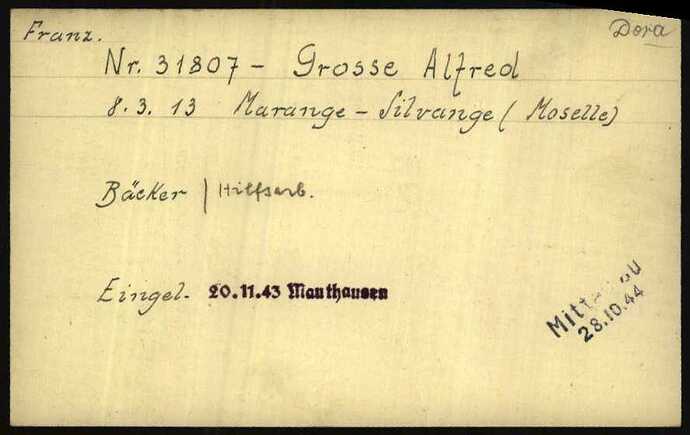 Franz. Dora
Nr. 31807 - Grosse Alfred
8. 3. 13 Marange - Silvange ( Moselle)
Bäcker / Hilfsarb.
Eingel. 20.11.43 Mauthausen
28.10.44